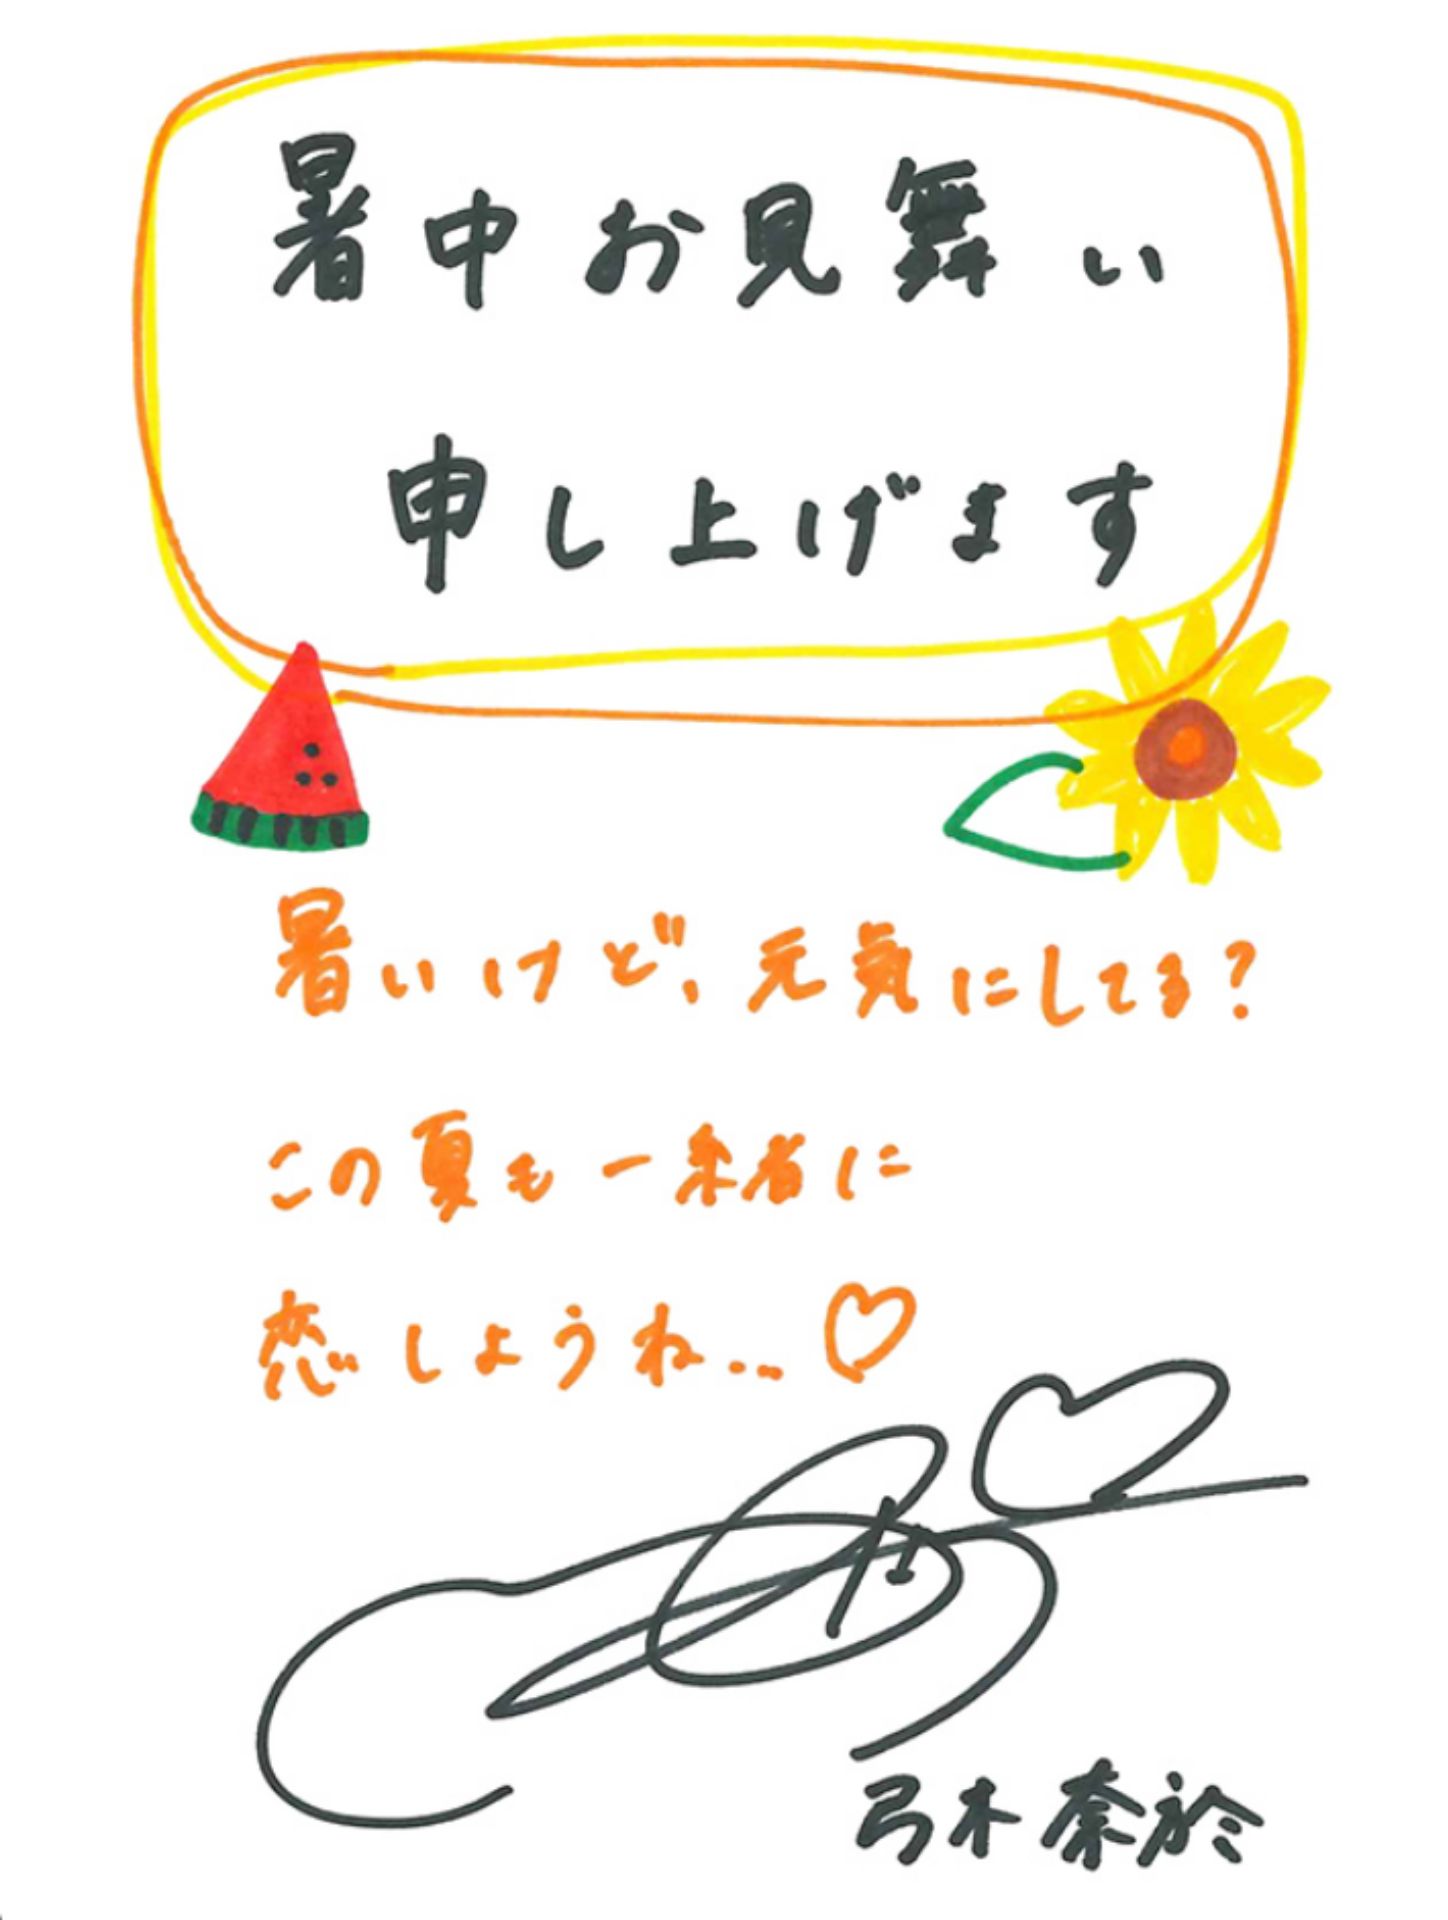 暑中お見舞い
申し上げます
暑いけど、元気にしてる?
この夏も一緒に
恋しようね...♡
弓木奈於